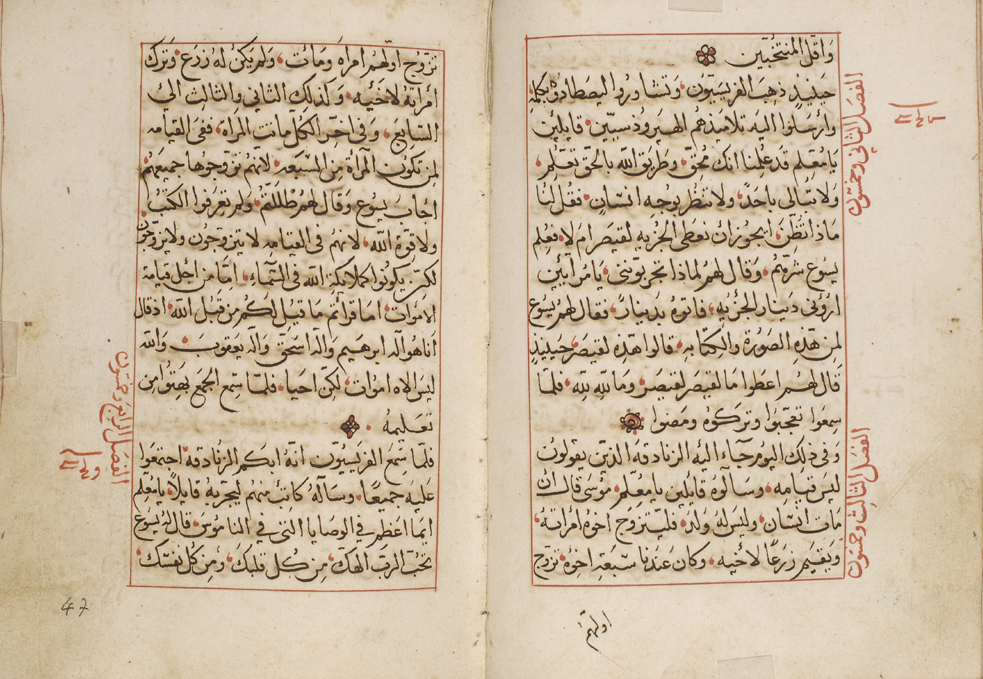 واقل المنتخبين
حينيذ ذهب الفريسيون وتشاوروا ليصطادوه بكلمه
وارسلوا اليه تلاميذهم الهيروذسيين قايلين
يا معلم قد علمنا انك محق وطريق الله بالحق تعلم
ولا تبالي باحد ولا تنظر بوجه انسان فقل لنا
ماذا تظن ايجوز ان نعطى الجزيه لقيصر ام لا فعلم
يسوع شرهم وقال لهم لماذا تجربوننى يا مرآيين
اروني دينار الجزيه فاتوه بدينار فقال لهم يسوع
لمن هذه الصورة والكتابه قالوا هذه لقيصر حينيذ
قال لهم اعطوا ما لقيصر لقيصر وما لله لله فلما
سمعوا تعجبوا وتركوه ومضوا
وفي ذلك اليوم جآء اليه الزنادقه الذين يقولون
ليس قيامه وسالوه قايلين يا معلم موسى قال ان
مات انسان وليس له ولد فليتزوج اخوه امراته
ويقيم زرعًا لاخيه وكان عندنا سبعه اخوة تزوج
الفصل الثاني وخمسون
الفصل الثالث وخمسون
اولهم
تزوج اولهم امراة ومات ولم يكن له زرع وترك
امراته لاخيه وكذلك الثاني والثالث الى
السابع وفي اخر الكل ماتت المراة ففي القيامه
لمن تكون المراة من السبعه لانهم تزوجوها جميعهم
اجاب يسوع وقال لهم ظللتم ولم تعرفوا الكتب
ولا قوة الله لانهم في القيامه لا يتزوجون ولا يزوجون
لكن يكونوا كملايكة الله في السمآء اما من اجل قيامة
الاموات اما قراتم ما قيل لكم من قبل الله اذ قال
انا هو اله ابرهيم واله اسحق واله يعقوب والله
ليس اله اموات لكن احيا فلما سمع الجمع بهتوا من
تعليمه
فلما سمع الفريسيون انه ابكم الزنادقه اجتمعوا
عليه جميعًا وساله كاتب منهم ليجربه قايلا يا معلم
ايما اعظم في الوصايا التى في الناموس قال له يسوع
تحب الرب الهك من كل قلبك ومن كل نفسك
الفصل الرابع وخمسون
47